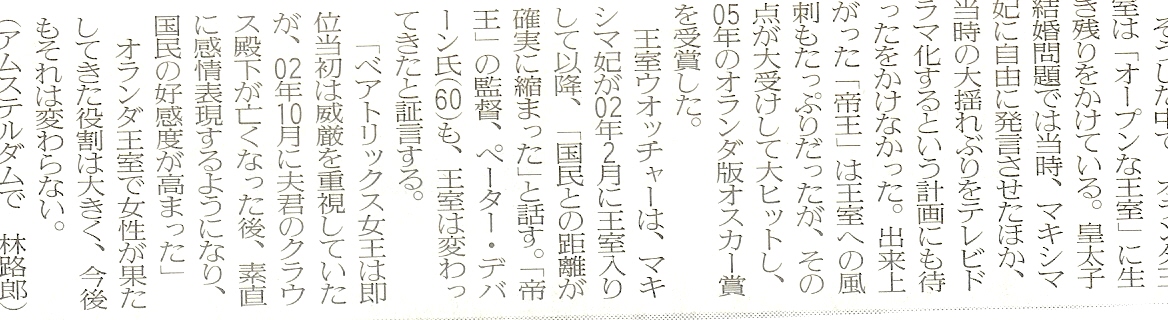 そうした中で、オランダ王
室は「オープンな王室」に生
き残りをかけている。皇太子
結婚問題では当時、マキシマ
妃に自由に発言させたほか、
当時の大揺れぶりをテレビド
ラマ化するという計画にも待
ったをかけなかった。出来上
がった「帝王」は王室への風
刺もたっぷりだったが、その
点が大受けして大ヒットし、
05年のオランダ版オスカー賞
を受賞した。
王室ウオッチャーは、マキ
シマ妃が02年2月に王室入り
して以降、「国民との距離が
確実に縮まった」と話す。「帝
王」の監督、ペーター・デバ
ーン氏(60)も、王室は変わっ
てきたと証言する。
「ベアトリックス女王は即
位当初は威厳を重視していた
が、02年10月に夫君のクラウ
ス殿下が亡くなった後、素直
に感情表現するようになり、
国民の好感度が高まった」
オランダ王室で女性が果た
してきた役割は大きく、今後
もそれは変わらない。
(アムステルダムで 林路郎)